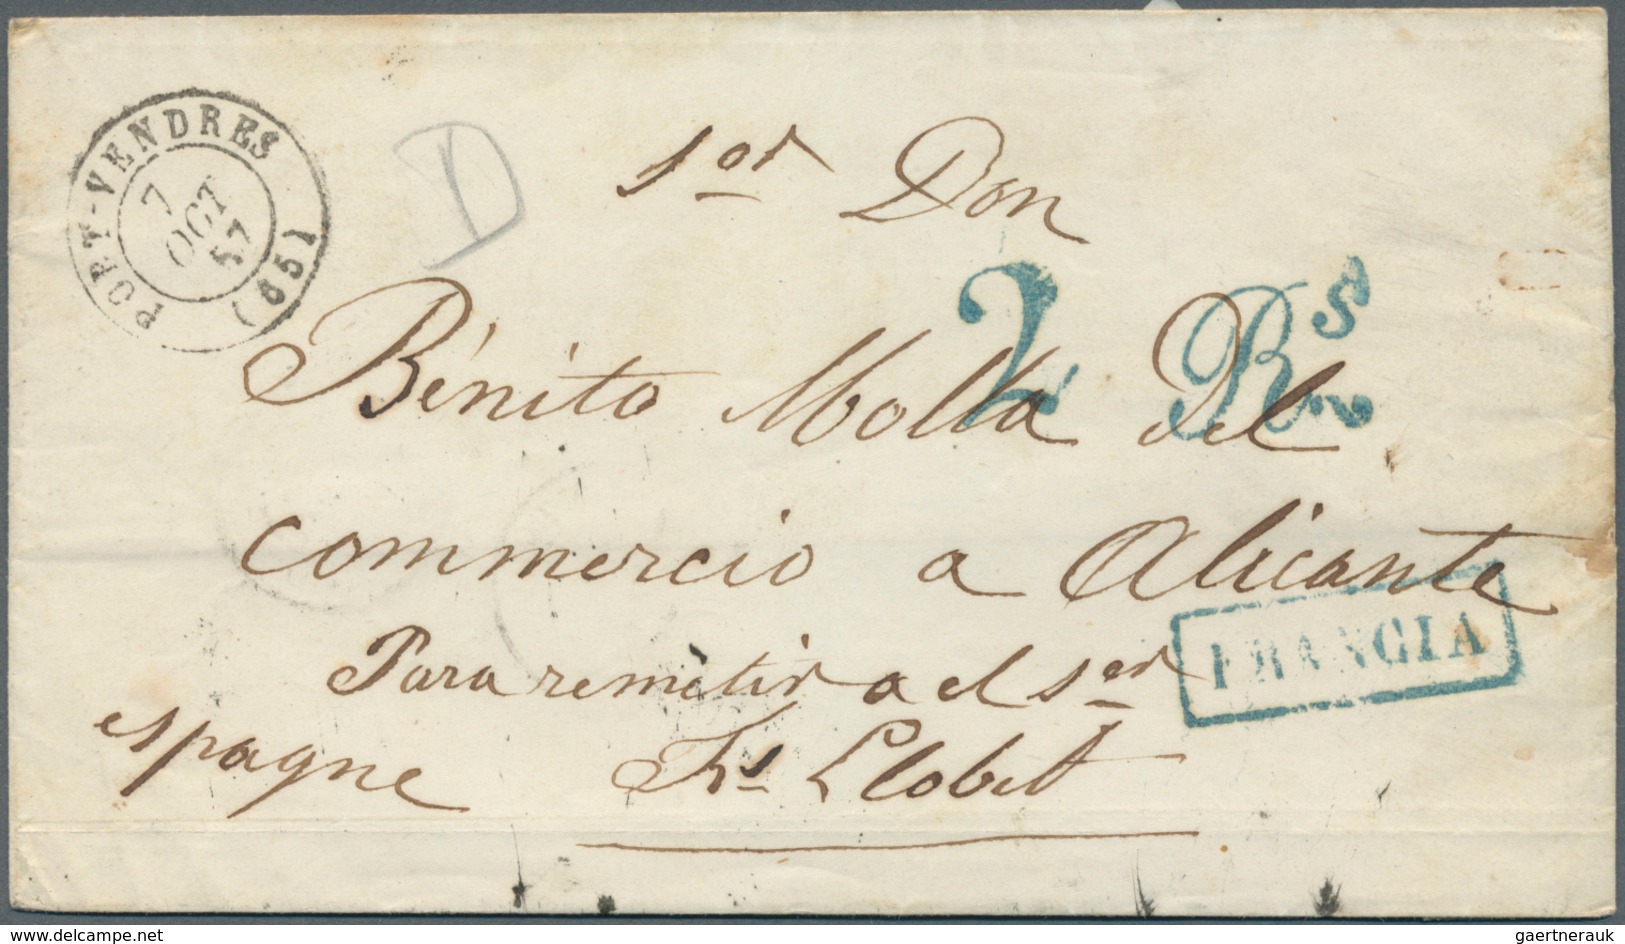 PORT-VENDRES
7
OCT
57
(65)
D
Sor Don
2 Rs
Bénito Molla Del
commercio a Alicante
FRANCIA
Para remètir a el ser
espagne Fs Llobet
www.delcampe.net
gaertnerauk